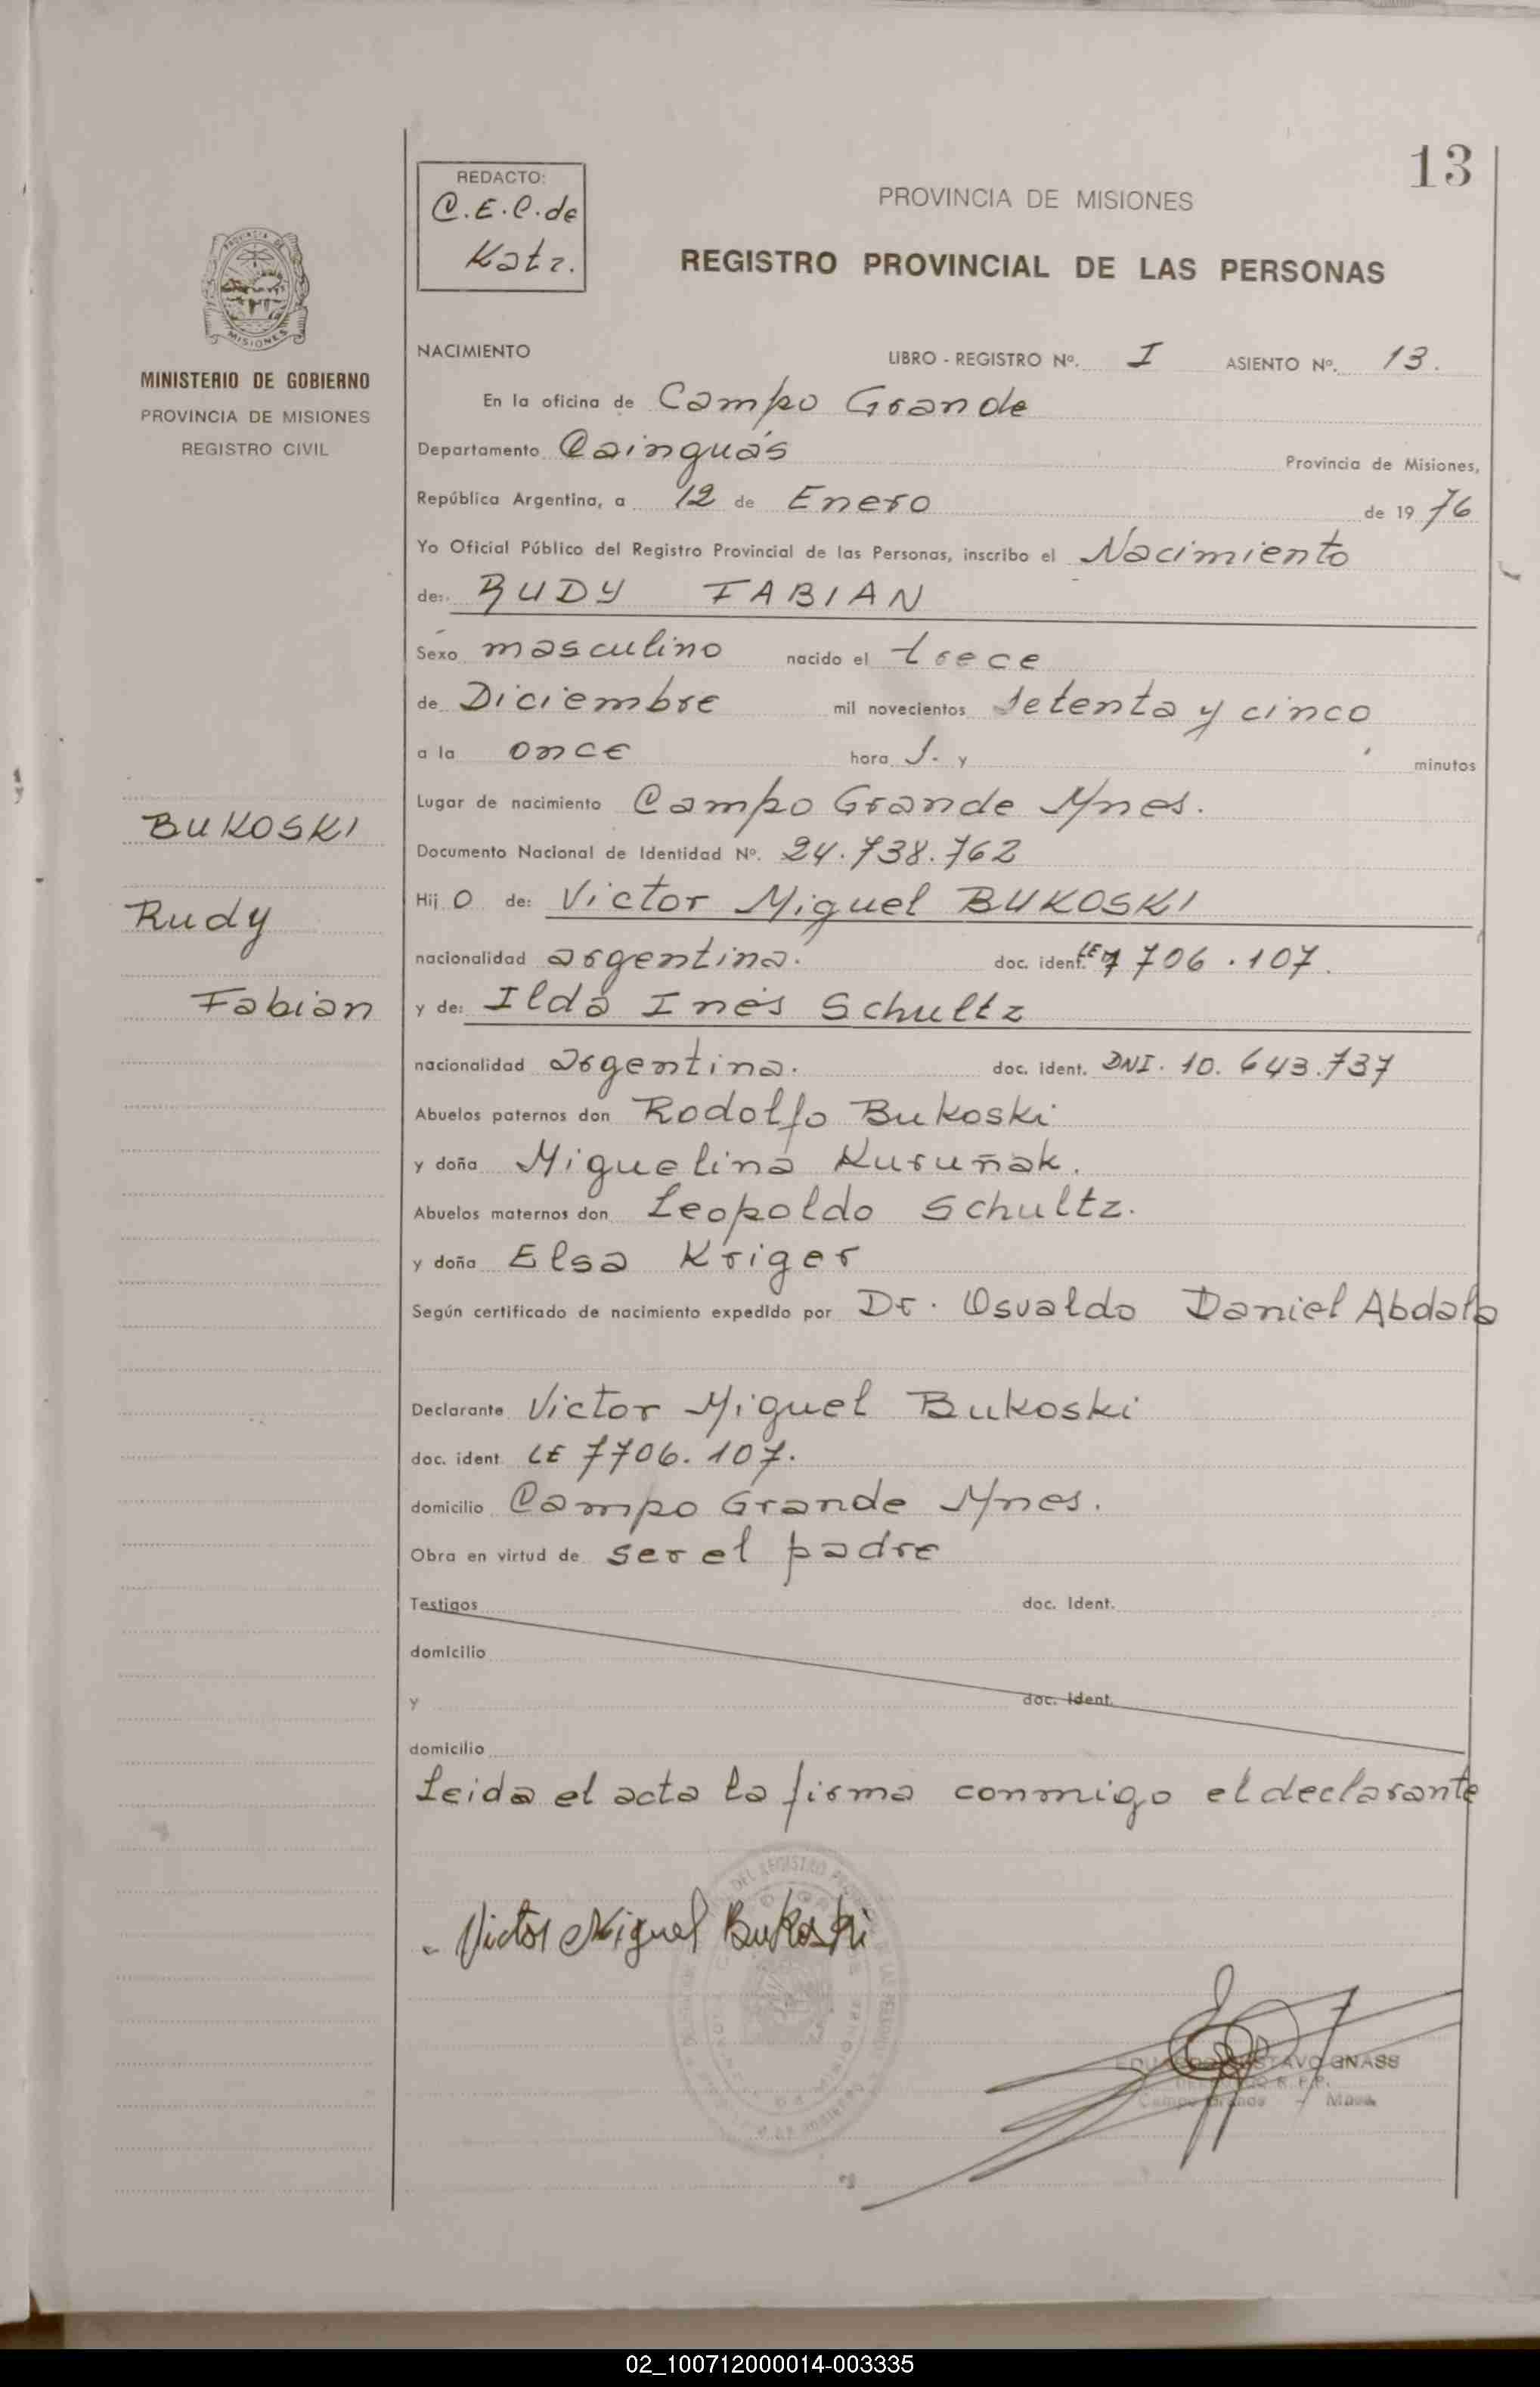 13
REDACTO:
C.E.C. de
Katz.
PROVINCIA DE MISIONES
REGISTRO PROVINCIAL DE LAS PERSONAS
MISIONES
MINISTERIO DE GOBIERNO
PROVINCIA DE MISIONES
REGISTRO CIVIL
BUKOSKI
Rudy
Fabian
NACIMIENTO LIBRO - REGISTRO Nº. I ASIENTO Nº. 13.
En la oficina de Campo Grande
Departamento Cainguás Provincia de Misiones,
República Argentina, a 12 de Enero de 19 76
Yo Oficial Público del Registro Provincial de las Personas, inscribo el Nacimiento
de: RUDY FABIAN
Sexo masculino nacido el trece
de Diciembre mil novecientos setenta y cinco
a la once hora s. y minutos
Lugar de nacimiento Campo Grande Mnes.
Documento Nacional de Identidad Nº. 24.738.762
Hij o de: Victor Miguel BUKOSKI
nacionalidad argentina. doc. ident. LE 7 706.107.
y de: Ilda Inés Schultz
nacionalidad argentina. doc. ident. DNI. 10.643.737
Abuelos paternos don Rodolfo Bukoski
y doña Miguelina Kuruñak.
Abuelos maternos don Leopoldo Schultz.
y doña Elsa Kriger
Según certificado de nacimiento expedido por Dr. Osvaldo Daniel Abdala
Declarante Victor Miguel Bukoski
doc. ident LE 7706.107.
domicilio Campo Grande Mnes.
Obra en virtud de ser el padre
Testigos doc. Ident.
domicilio
y doc. Ident.
domicilio
Leida el acta la firma conmigo el declarante
Victor Miguel Bukoski
EDUARDO GUSTAVO GNASS
Campo Grande - Mnes.
02_100712000014-003335